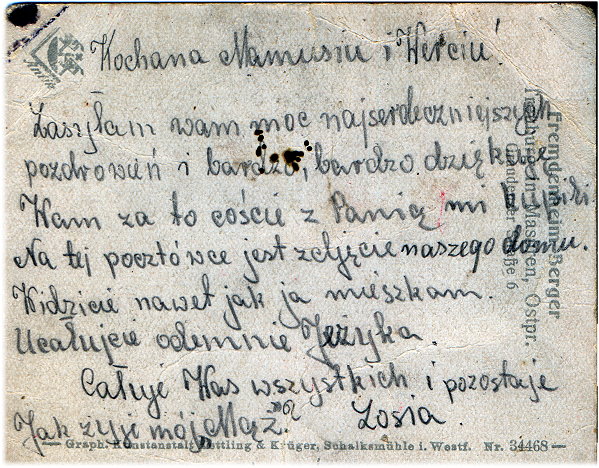 Kochana Mamusiu i Werciu!
Zasyłam wam moc najserdeczniejszych
pozdrowień i bardzo, bardzo dziękuję
Wam za to coście z Panią mi kupiły
Na tej pocztówce jest zdjęcie naszego domu.
Widzicie nawet jak ja mieszkam.
Ucałujcie odemnie Jeżyka.
Całuję Was wszystkich i pozostaję
Jak żyje mój Mąż? Zosia.
Fremdenheim Berger
Masuren, Ostpr.
Graph. Kunstanstalt Hettling & Krüger, Schalksmühle i. Westf. Nr. 34468